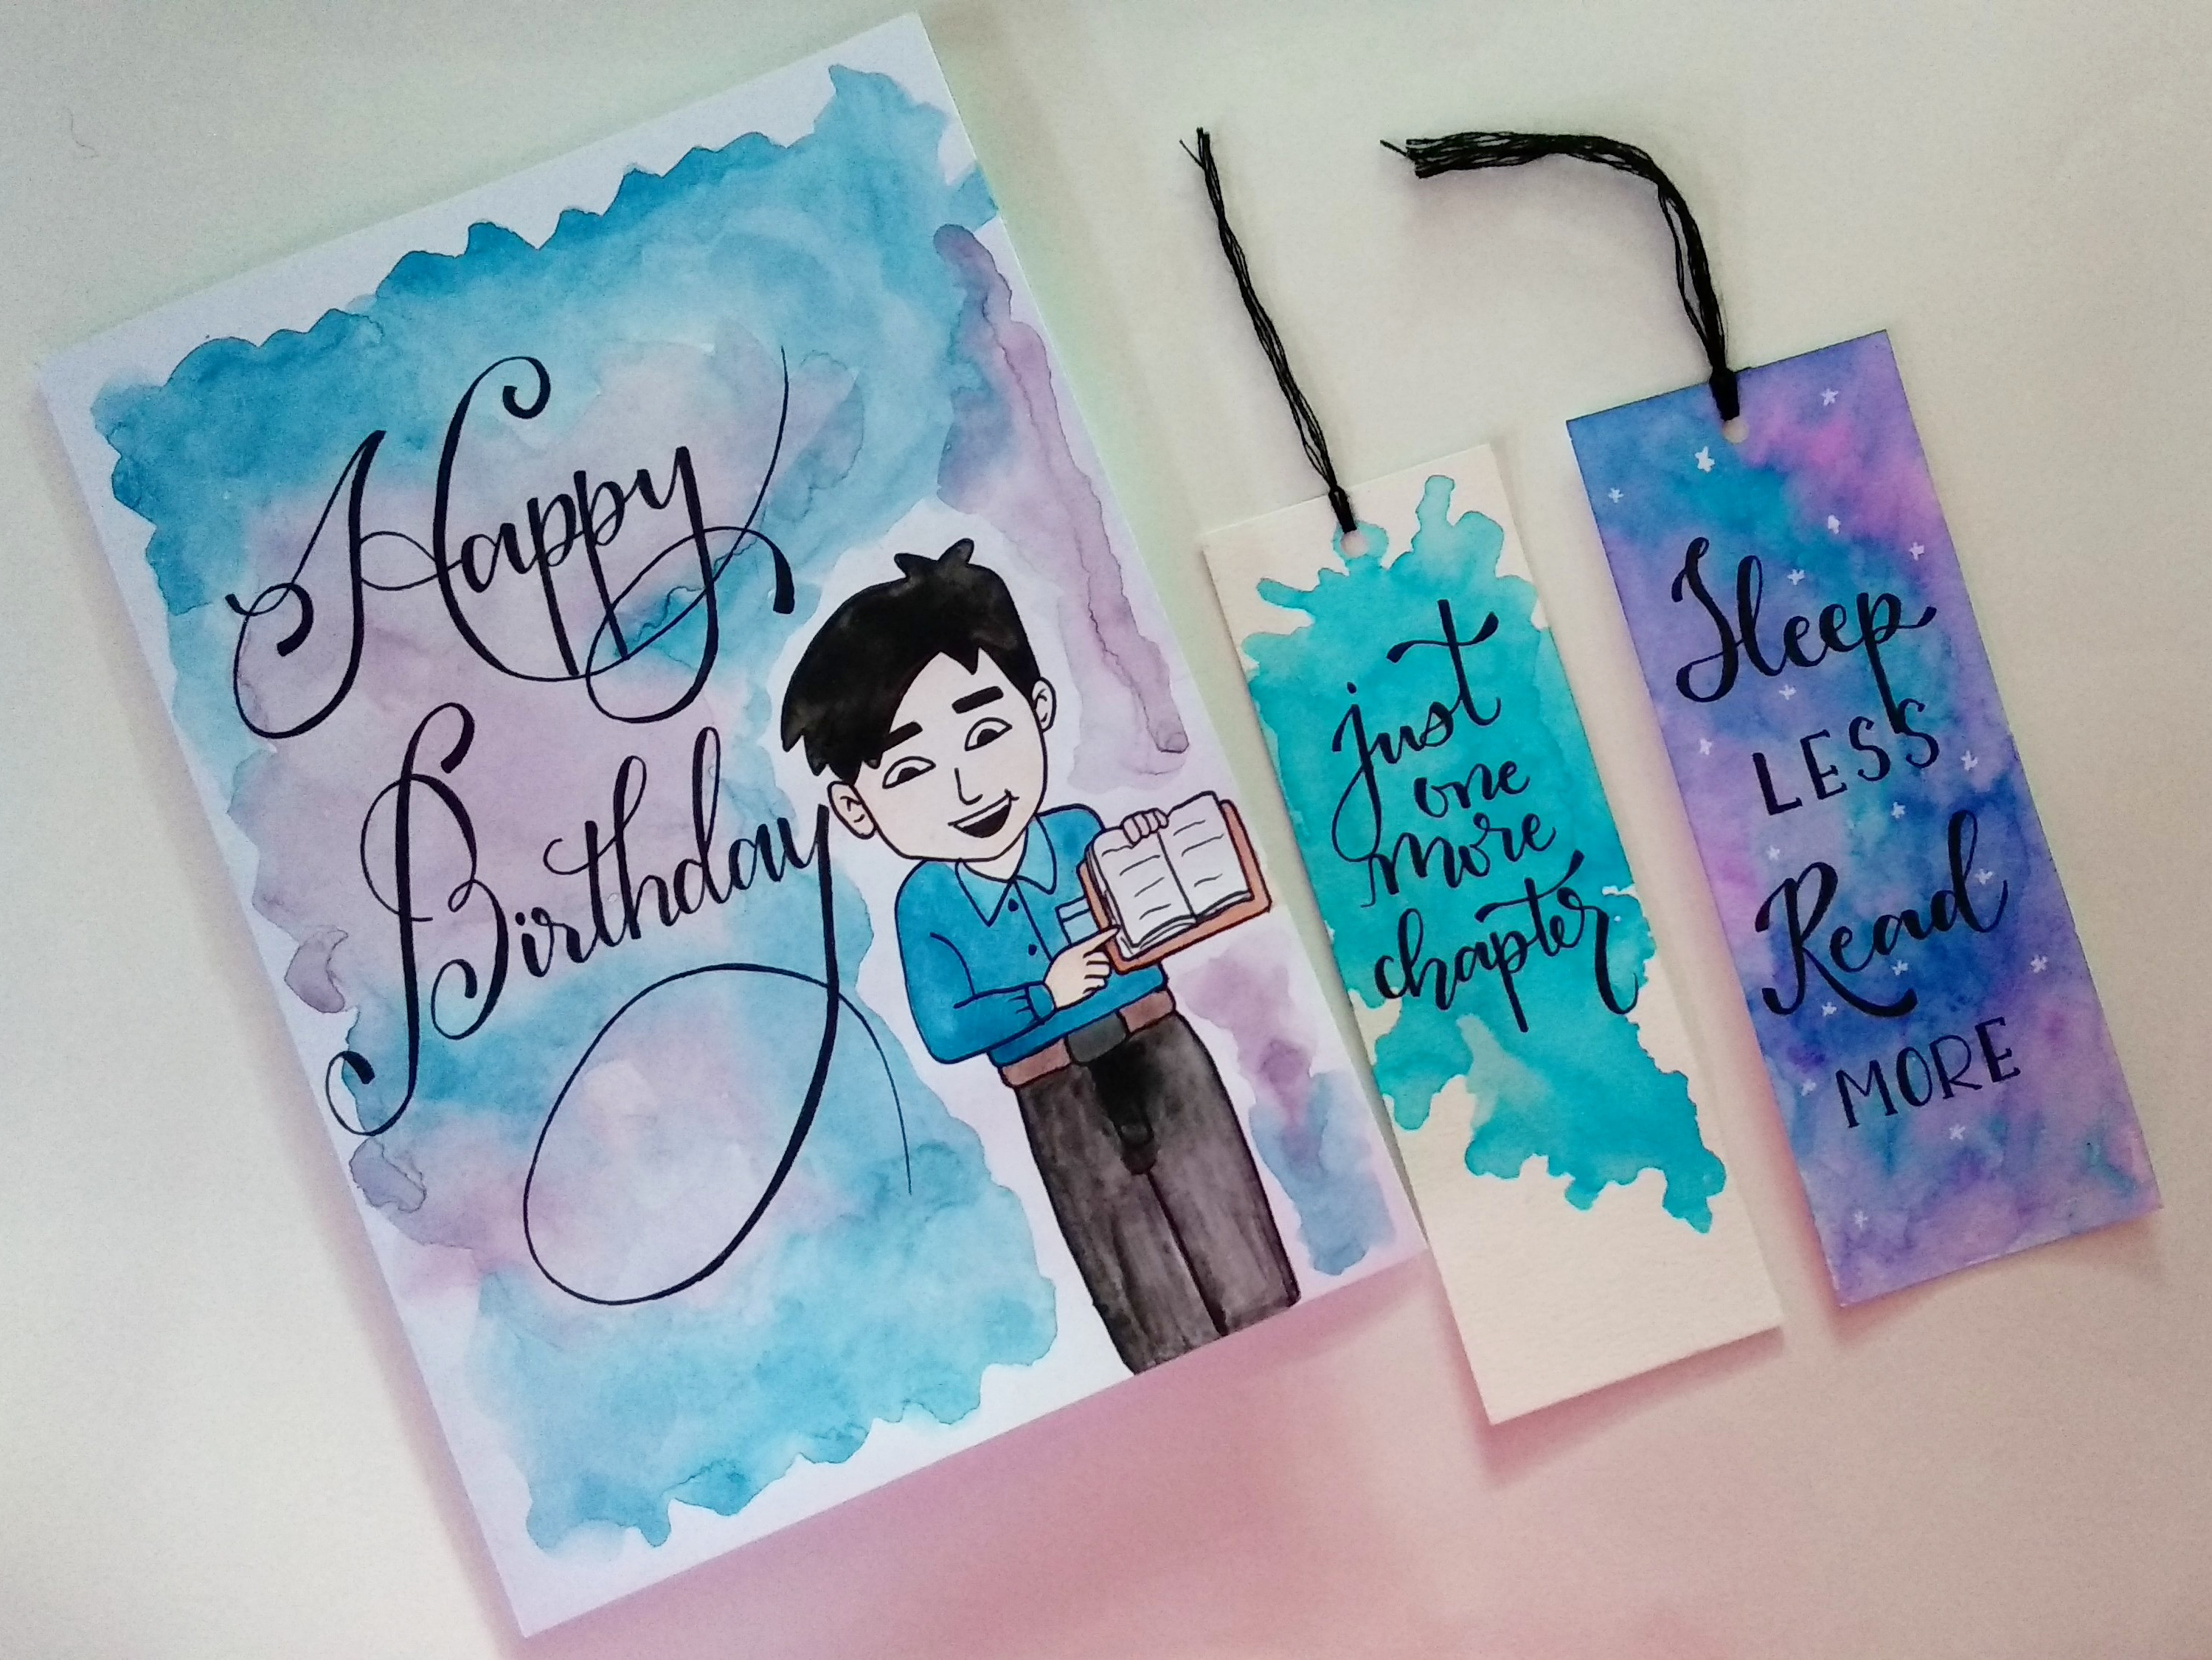 Happy
Birthday
just
one
more
chapter
Sleep
LESS
Read
MORE